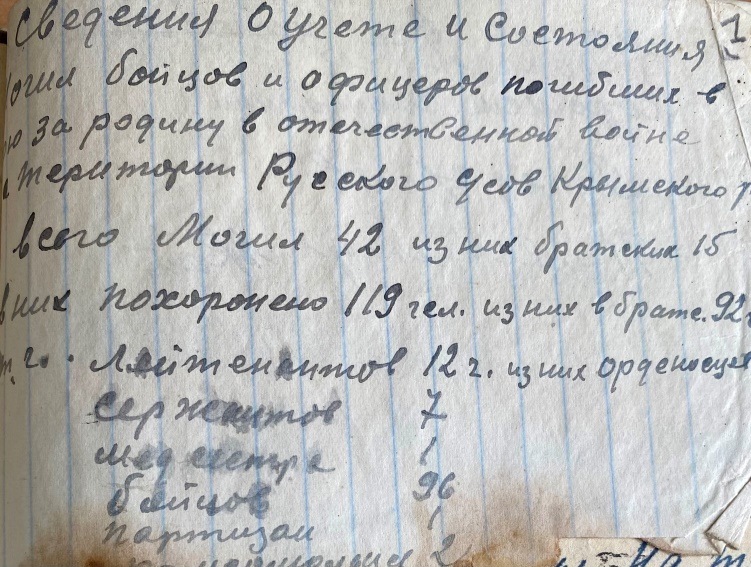 1
Сведения о учете и состояния
могил бойцов и офицеров погибших в
ю за родину в отечественной войне
територии Русского с/сов Крымского р
всего Могил 42 из них братских 15
в них похоронено 119 чел. из них в братс. 92
т.г. Лейтенантов 12 ч. из них орденосце
Сержантов 7
медсестра 1
бойцов 96
партизан 1
2
на т